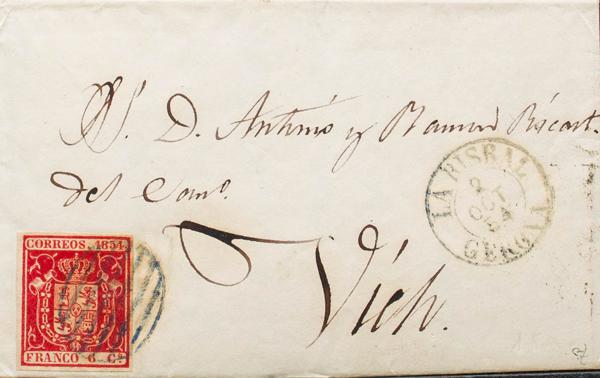 S. D. Antonio y Ramon Riscart.
del Com.º
Vich.
LA BISBAL
9
OCT
54
GERONA
CORREOS 1854.
FRANCO 6 Cs.